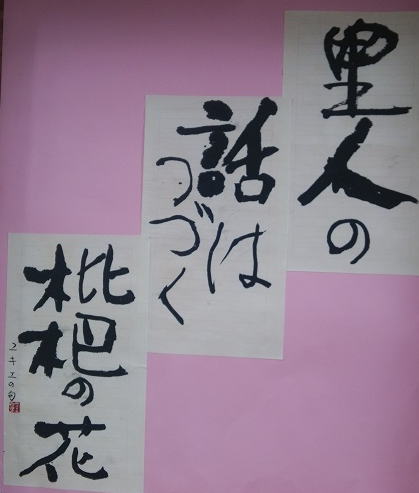 里人の
話は
つづく
枇杷の花
ユキエの句